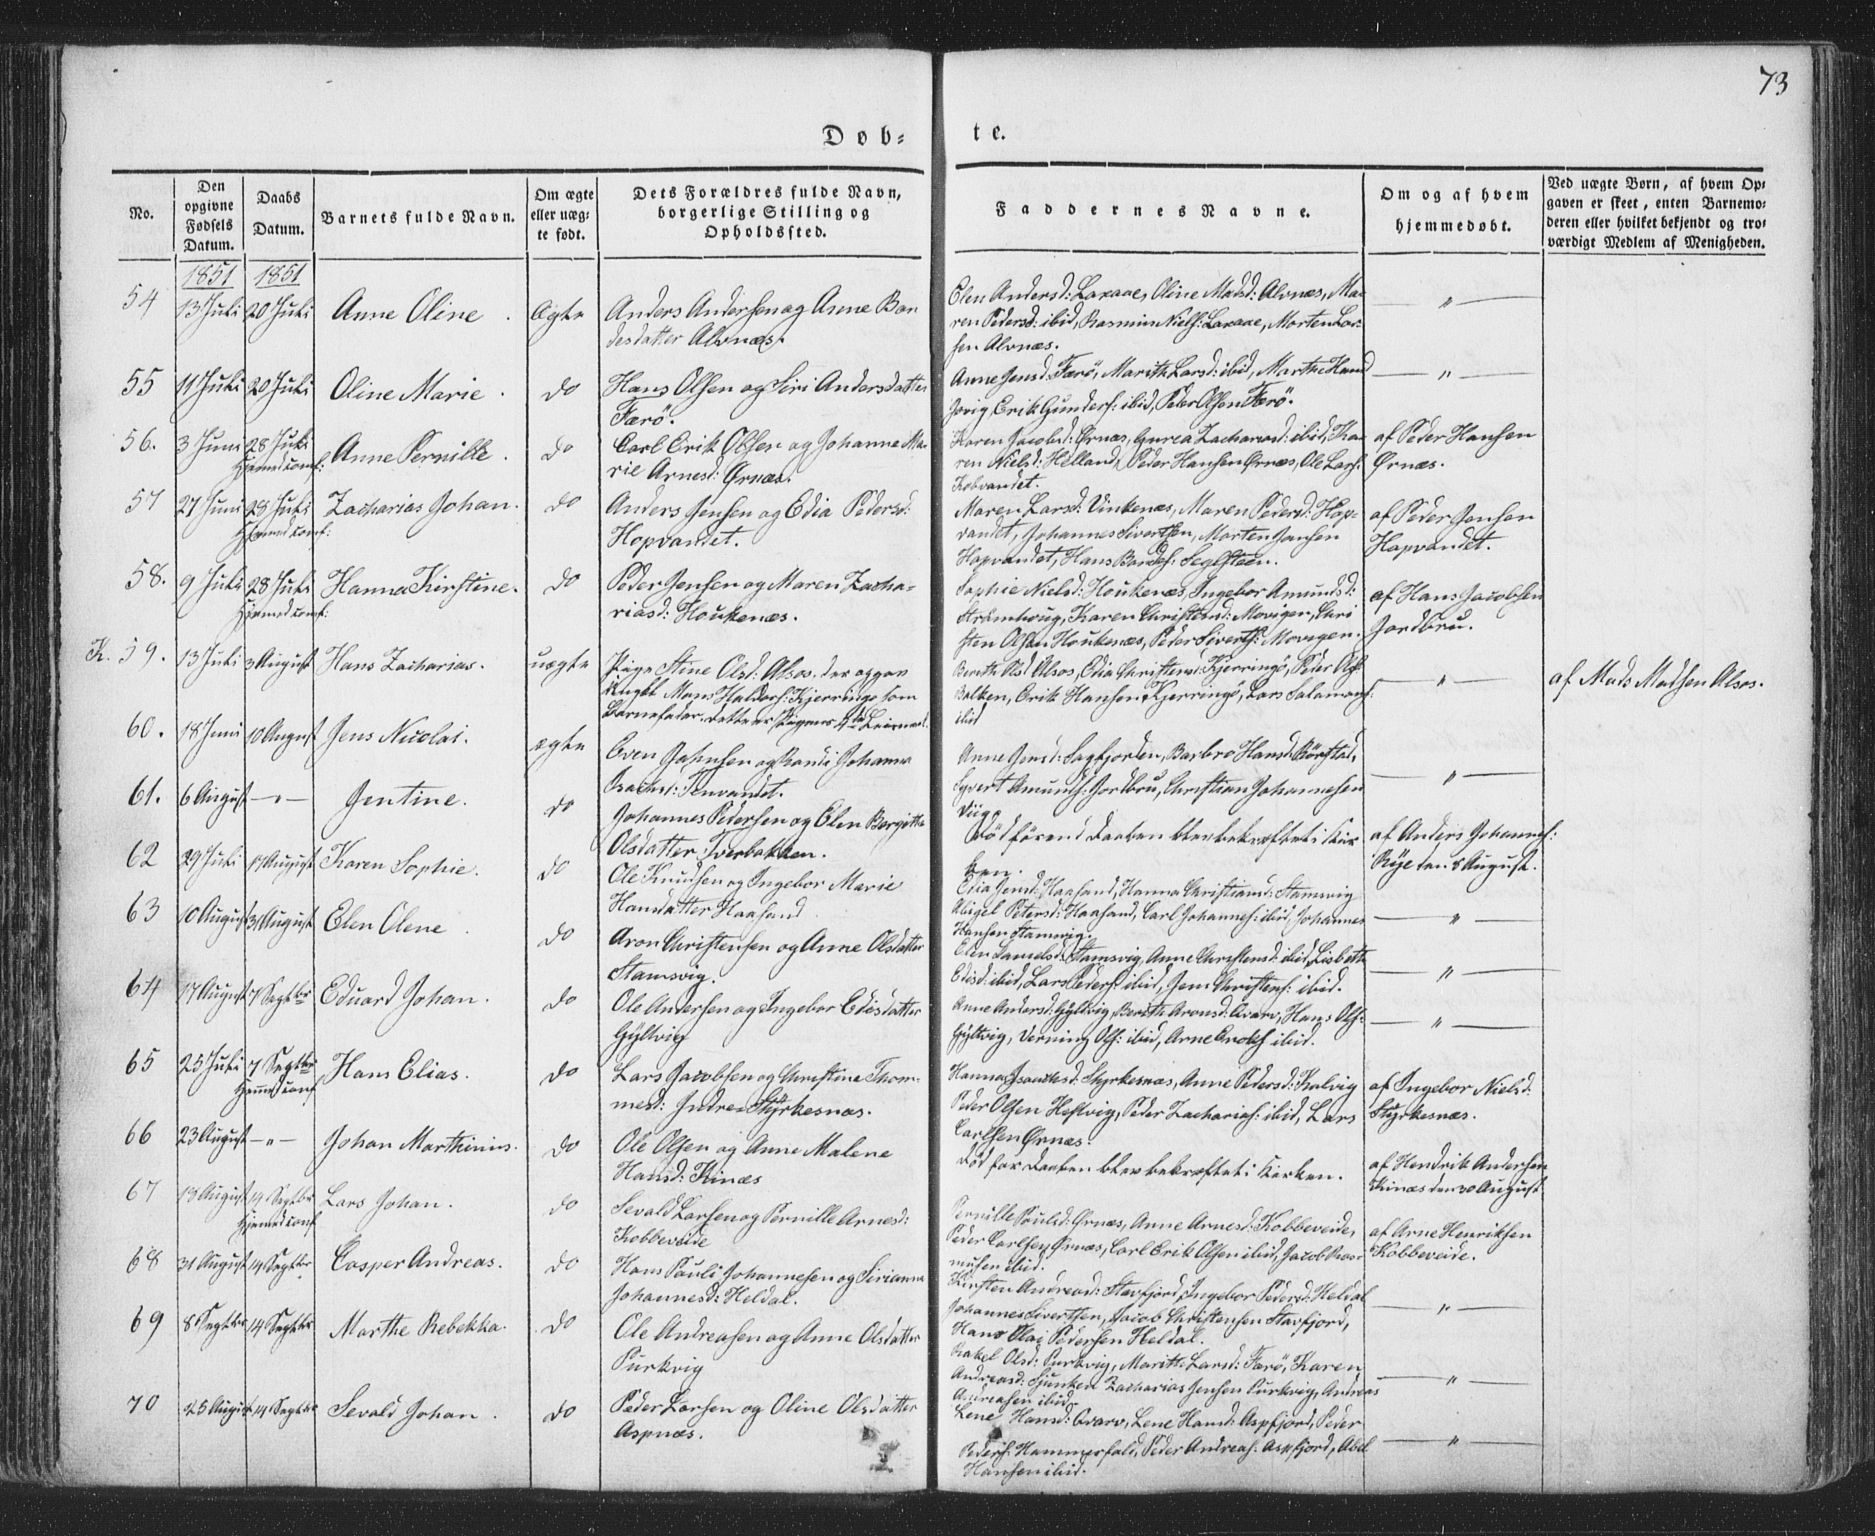 73
Døb=
te.
No.
Den opgivne Fødsels Datum.
Daabs Datum.
Barnets fulde Navn.
Om ægte eller uæg- te født.
Dets Forældres fulde Navn, borgerlige Stilling og Opholdssted.
Faddernes Navne.
Om og af hvem hjemmedøbt.
Ved uægte Børn, af hvem Op- gaven er skeet, enten Barnemo- deren eller hvilket bekjendt og tro- værdigt Medlem af Menigheden.
1851 1851
54 13 Juli 20 Juli Anne Oline. Ægte Anders Andersen og Anne Ban
desdatter Alvnæs.
Elen Andersd: Laxaae, Oline Madsd: Alvnæs, Ma-
ren Pedersd: ibid, Rasmus Niels: Laxaae, Morten Lar-
sen Alvnæs.
— " —
55 11 Juli 20 Juli Oline Marie. do Hans Olsen og Siri Andersdatter
Færö.
Anne Jensd: Færö, Marith Larsd: ibid, Marthe Hansd
Erik Gunders: ibid, Peder Olsen Færö.
— " —
56. 3 Juni 28 Juli Hjemed conf: Anne Pernille. do Carl Erik Olsen og Johanne Ma-
rie Arnesd: Ørnæs.
Karen Jacobsd: Ørnæs, Gurea Zachariasd: ibid, Ka-
ren Nielsd: Helland, Peder Hansen Ørnæs, Ole Lars:
Kobvandet.
af Peder Hansen
Ørnæs.
57 27 Juni 28 Juli Hjemed conf: Zacharias Johan. do Anders Jensen og Edia Pedersd:
Hopvandet.
Maren Larsd: Vinkenæs, Maren Pedersd: Hop-
vandet, Johannes Sivertsen, Morten Jensen
Hopvandet, Hans Bendts: Seglsteen.
af Peder Jensen
Hopvandet.
58. 9 Juli 28 Juli Hjemed conf: Hanna Kirstine. do Peder Jensen og Maren Zacha-
riasd: Houkenæs.
Sophie Nielsd: Houkenæs, Ingebor Amundsd:
Strømhoug, Karen Christensd: Movigen, Chri
sten Olsen Houkenæs, Peder Siverts: Movigen.
af Hans Jacobsen
Jordbru.
K. 59. 13 Juli 3 August Hans Zacharias. uægte Pige Stine Olsd: Alsos, der opgav
Ungkl Mons Haldors: Kjerringö som
Barnefader. Dette er Pigens 4de Leiermaal.
Berith Olsd Alsos, Edia Christensd: Kjerringö, Peder Ols:
Balken, Erik Hansen Kjerringö, Lars Salamons:
ibid
— " —
af Mads Madsen Alsos.
60. 18 Juni 10 August Jens Nicolai. ægte Even Johnsen og Randi Johanna
Isachsd: Tenvandet.
Anne Jensd: Sagfjorden, Barbro Hansd: Rörstad,
Syvert Amunds: Jordbru, Christian Johannesen
Viig.
— " —
61. 6 August — " — Jentine. do Johannes Pedersen og Elen Bergitte
Olsdatter Tverbakken.
Död förend Daaben blev bekræftet i Kir
ken.
af Anders Johannes:
Röye den 8 August.
62 29 Juli 17 August Karen Sophie. do Ole Knudsen og Ingebor Marie
Hansdatter Haasand
Edia Jensd: Haasand, Hanna Christiansd: Stamsvig
Abigel Petersd: Haasand, Carl Johannes: ibid, Johannes
Hansen Stamsvig.
— " —
63 10 August 31 August Elen Olene. do Aron Christensen og Anne Olsdatter
Stamsvig.
Elen Danielsd: Stamsvig, Anne Christensd: ibid, Lisbeth
Edisd: ibid, Lars Peders: ibid, Jens Christens: ibid.
— " —
64 17 August 7 Septbr Eduard Johan. do Ole Andersen og Ingebor Edisdatter
Gyltvig
Anne Andersd: Gyltvig, Berith Aronsd: Qvarv, Hans Ols:
Gyltvig, Verning Ols: ibid, Arne Enoks ibid.
— " —
65 25 Juli 7 Septbr Hjemed conf Hans Elias. do Lars Jacobsen og Christine Thom-
mesd: Indre Styrkesnæs.
Hanna Isachsd: Styrkesnæs, Anne Pedersd: Kalvig
Peder Olsen Hestvig, Peder Zacharias: ibid, Lars
Carlsen Ørnæs.
af Ingebor Nielsd:
Styrkesnæs.
66 23 August — " — Johan Marthinius. do Ole Olsen og Anne Malene
Hansd: Kinæs
Död før Daaben blev bekræftet i Kirken.
af Hendrik Andersen
Kinæs den 30 August
67 13 August 14 Septbr Hjemed conf Lars Johan. do Sevald Larsen og Pernille Arnesd:
Kobbeveide
Pernille Poulsd: Ørnæs, Anne Arnesd: Kobbeveide,
Peder Carlsen Ørnæs, Carl Erik Olsen ibid, Jacob Ras-
musen ibid.
af Arne Henriksen
Kobbeveide.
68 31 August 14 Septbr Casper Andreas. do Hans Pauli Johannesen og Sirianna
Johannesd: Heldal.
Kirsten Andreasd: Stavfjord, Ingebor Pedersd: Heldal
Johannes Sivertsen, Jacob Christensen Stavfjord,
Hans Olai Pedersen Heldal.
— " —
69 8 Septbr 14 Septbr Marthe Rebekka. do Ole Andreasen og Anne Olsdatter
Purkvig
Rakel Olsd: Purkvig, Marith Larsd: Færö, Karen
Andreasd: Sjunken Zacharias Jensen Purkvig, Andreas
Andreasen ibid.
— " —
70 25 August 14 Septbr Sevald Johan. do Peder Larsen og Oline Olsdatter
Aspnæs.
Lene Hansd: Qvarv, Lene Hansd: Aspfjord, Peder
Peders: Hammerfald, Peder Andreas: Aspfjord, Abel
Hansen ibid.
— " —